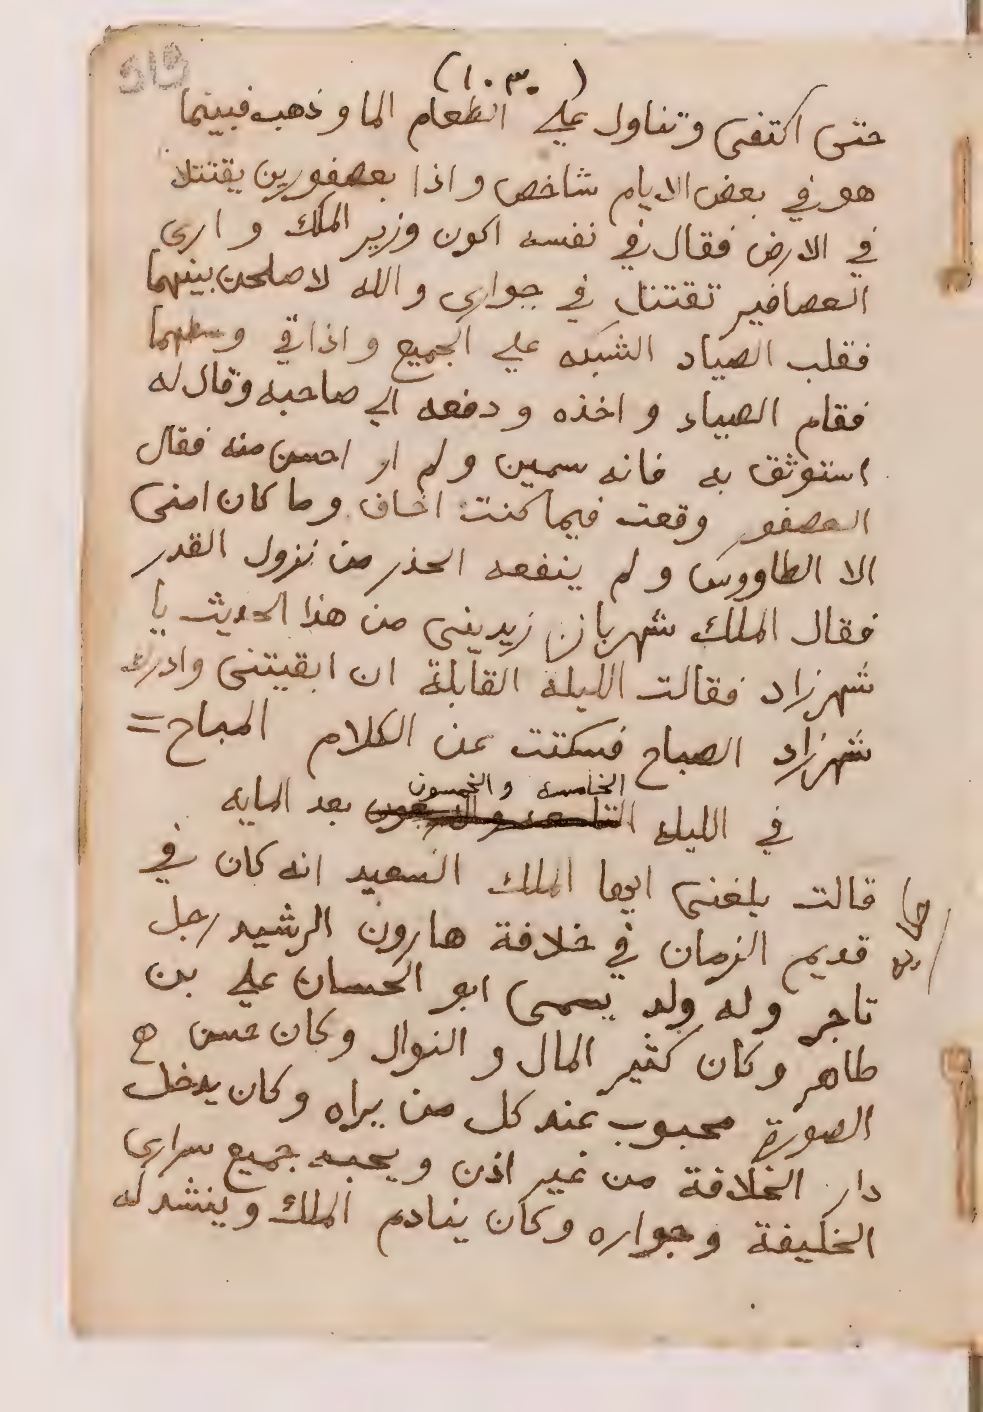 (١٠٣٠)
حتى اكتفى وتناول علي الطعام الما وذهب فبينما
هو في بعض الايام شاخص واذا بعصفورين يقتتلا
في الارض فقال في نفسه اكون وزير الملك وارى
العصافير تقتتل في جوارى والله لاصلحن بينهما
فقلب الصياد الشبكه علي الجميع واذا في وسطهما
فقام الصياد واخذه ودفعه الي صاحبه وقال له
استوثق به فانه سمين ولم ار احسن منه فقال
العصفور وقعت فيما كنت اخاف وما كان امنى
الا الطاووس ولم ينفعه الحذر من نزول القدر
فقال الملك شهرباز زيدينى من هذا الحديث يا
شهرزاد فقالت الليله القابلة ان ابقيتنى وادرك
شهرزاد الصباح فسكتت عن الكلام المباح =
الخامسه والخمسون
في الليله التاسعه والاربعون بعد المايه
قالت بلغنى ايها الملك السعيد انه كان في
قديم الزمان في خلافة هارون الرشيد رجل
تاجر وله ولد يسمى ابو الحسان علي بن
طاهر وكان كثير المال والنوال وكان حسن
الصورة محبوب عند كل من يراه وكان يدخل
دار الخلافة من غير اذن ويحبه جميع سرارى
الخليفة وجواره وكان ينادم الملك وينشد له